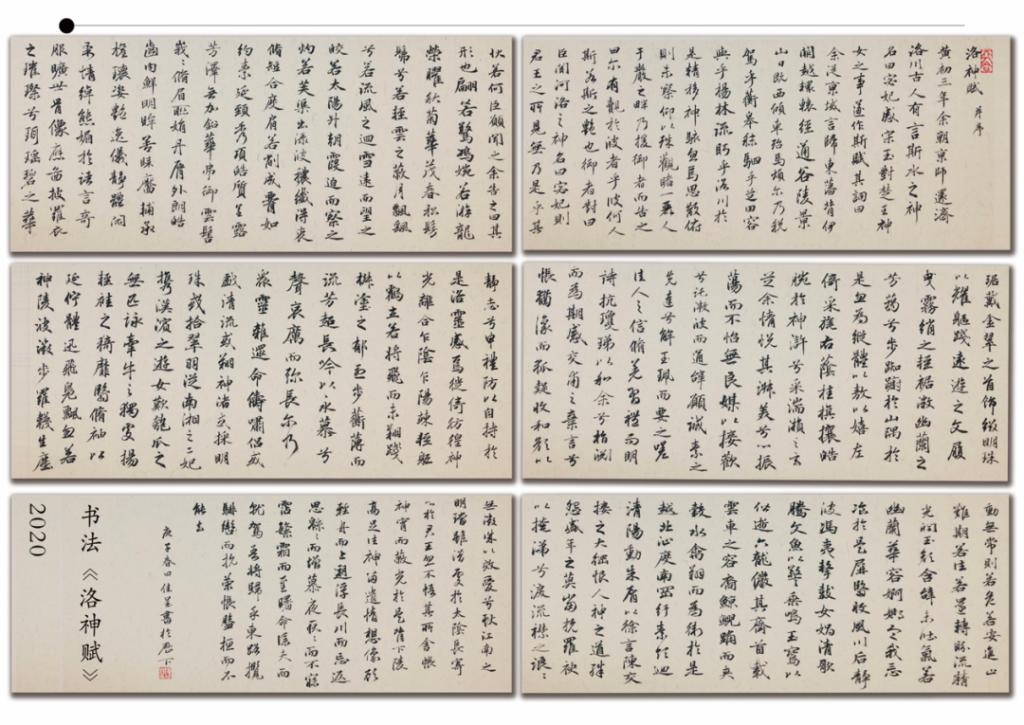 洛神賦 并序
黄初三年余朝京師還濟
洛川古人有言斯水之神
名曰宓妃感宋玉對楚王神
女之事遂作斯賦其詞曰
余從京域言歸東藩背伊
闕越轘轅經通谷陵景
山日既西傾車殆馬煩尔乃税
駕乎蘅皋秣駟乎芝田容
與乎楊林流眄乎洛川於
是精移神駭忽焉思散俯
則未察仰以殊觀睹一麗人
于巖之畔乃援御者而告之
曰尔有覿於彼者乎彼何人
斯若斯之艷也御者對曰
臣聞河洛之神名曰宓妃則
君王之所見無乃是乎其
狀若何臣願聞之余告之曰其
形也翩若驚鴻婉若游龍
榮曜秋菊華茂春松髣
髴兮若輕雲之蔽月飄飄
兮若流風之迴雪遠而望之
皎若太陽升朝霞迫而察之
灼若芙蕖出淥波穠纖得衷
脩短合度肩若削成腰如
約素延頸秀項皓質呈露
芳澤無加鉛華弗御雲髻
峩峩脩眉聯娟丹脣外朗皓
齒内鮮明眸善睞靨輔承
權瓌姿艷逸儀靜體閑
柔情綽態媚於語言奇
服曠世骨像應圖披羅衣
之璀璨兮珥瑤碧之華
琚戴金翠之首飾綴明珠
以耀軀踐遠遊之文履
曳霧綃之輕裾微幽蘭之
芳藹兮步踟躕於山隅於
是忽焉縱體以敖以嬉左
倚采旄右蔭桂旗攘皓
腕於神滸兮采湍瀨之玄
芝余情悅其淑美兮心振
蕩而不怡無良媒以接歡
兮託微波而通辭願誠素之
先達兮解玉珮而要之嗟
佳人之信脩羌習禮而明
詩抗瓊珶以和余兮指淵
而為期感交甫之棄言兮
悵猶豫而狐疑收和顏以
靜志兮申禮防以自持於
是洛靈感焉徙倚彷徨神
光離合乍陰乍陽竦輕軀
以鶴立若將飛而未翔踐
椒塗之郁烈步蘅薄而
流芳超長吟以永慕兮
聲哀厲而弥長尔乃
衆靈雜遝命儔嘯侶或
戲清流或翔神渚或採明
珠或拾翠羽從南湘之二妃
攜漢濱之遊女歎匏瓜之
無匹詠牽牛之獨處揚
輕袿之猗靡翳脩袖以
延佇體迅飛鳧飄忽若
神陵波微步羅韈生塵
動無常則若危若安進止
難期若往若還轉眄流精
光潤玉顏含辭未吐氣若
幽蘭華容婀娜令我忘
飡於是屏翳收風川后靜
波馮夷擊鼓女媧清歌
騰文魚以警乘鳴玉鸞以
偕逝六龍儼其齊首載
雲車之容裔鯨鯢踊而夾
轂水禽翔而為衛於是
越北沚度南岡紆素領迴
清陽動朱脣以徐言陳交
接之大綱恨人神之道殊
怨盛年之莫當抗羅袂
以掩涕兮淚流襟之浪浪
無微情以效愛兮獻江南之
明璫雖潛處於太陰長寄
心於君王忽不悟其所舍悵
神宵而蔽光於是背下陵
高足往神留遺情想像顧
輕舟而上遡浮長川而忘返
思綿綿而增慕夜耿耿而不寐
霑繁霜而至曙命僕夫而
就駕吾將歸乎東路攬
騑轡而抗策悵盤桓而不
能去
庚子春田佳書於
书法《洛神赋》
2020